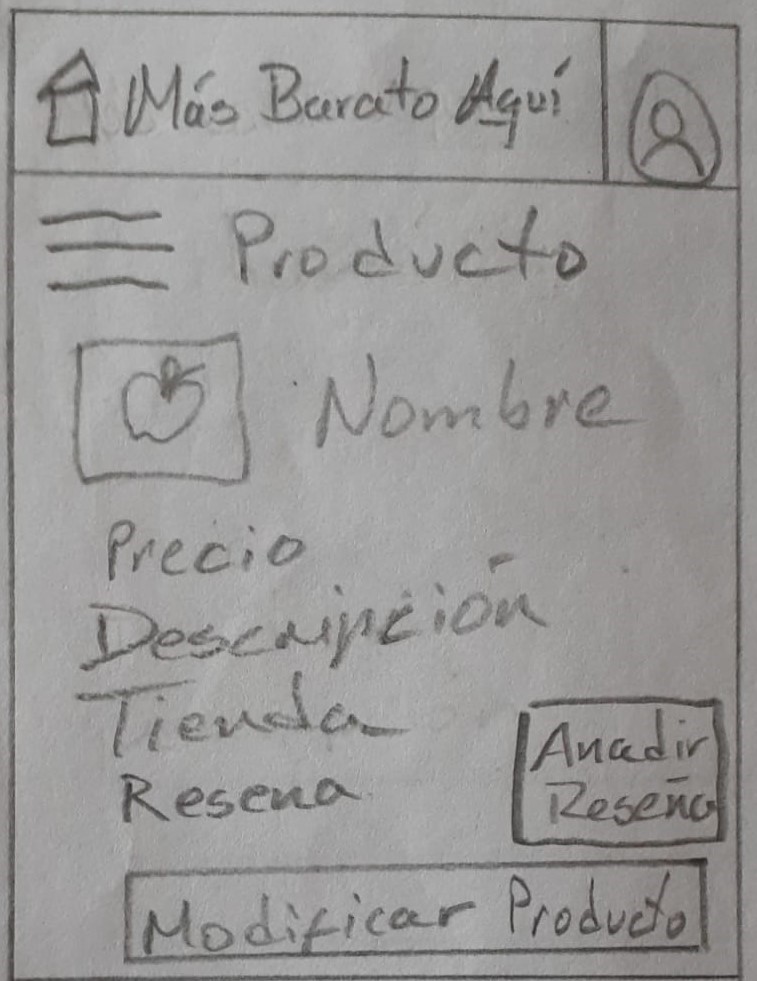 Más Barato Aquí
Producto
Nombre
Precio
Descripción
Tienda
Resena
Anadir
Reseña
Modificar Producto